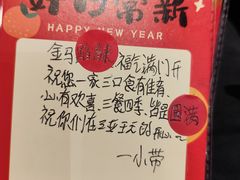 常新
HAPPY NEW YEAR
金马 福气满门开
祝您一家三口食有佳肴
心有欢喜 三餐四季 皆是圆满
祝你们在三亚
一小带